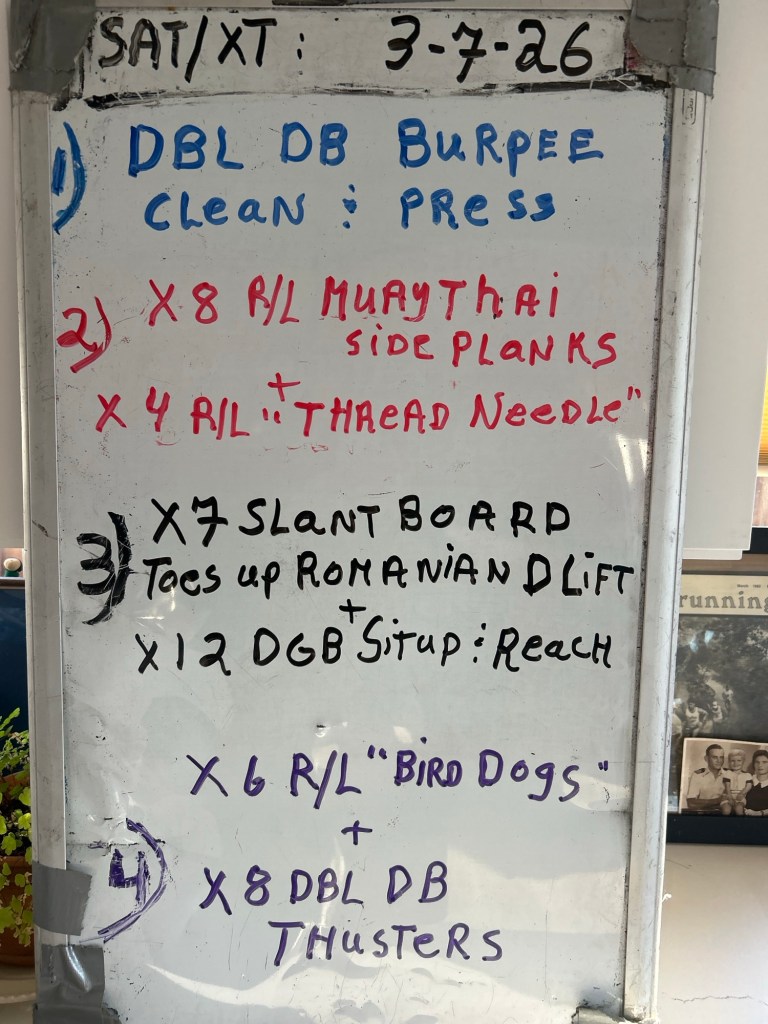 SAT/XT: 3-7-26
1) DBL DB BURPEE
CLEAN & PRESS
2) X 8 R/L MUAY THAI
SIDE PLANKS
+
X 4 R/L "THREAD NEEDLE"
3) X7 SLANT BOARD
TOES UP ROMANIAN DLIFT
+
X 12 DGB SITUP & REACH
X 6 R/L "BIRD DOGS"
+
4) X 8 DBL DB
THUSTERS
running